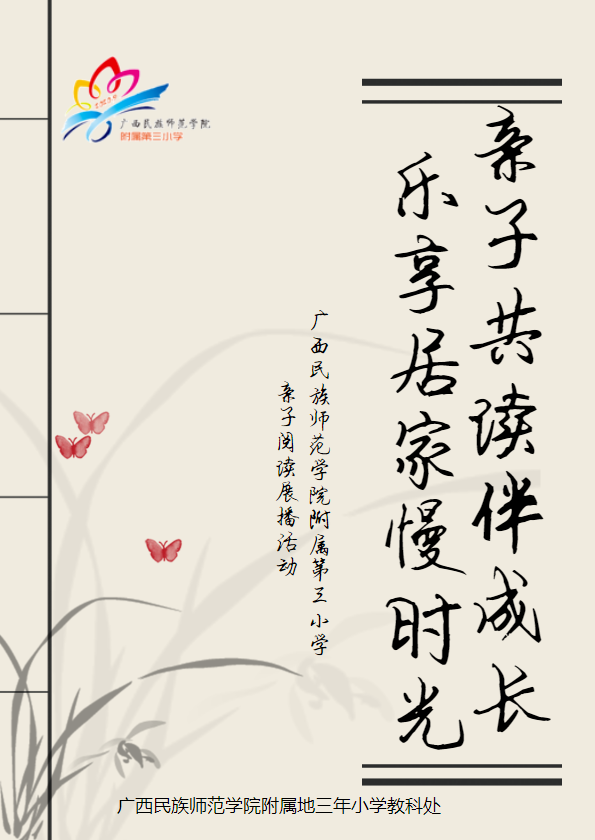 广西民族师范学院
附属第三小学
亲子共读伴成长
乐享居家慢时光
广西民族师范学院附属第三小学
亲子阅读展播活动
广西民族师范学院附属地三年小学教科处